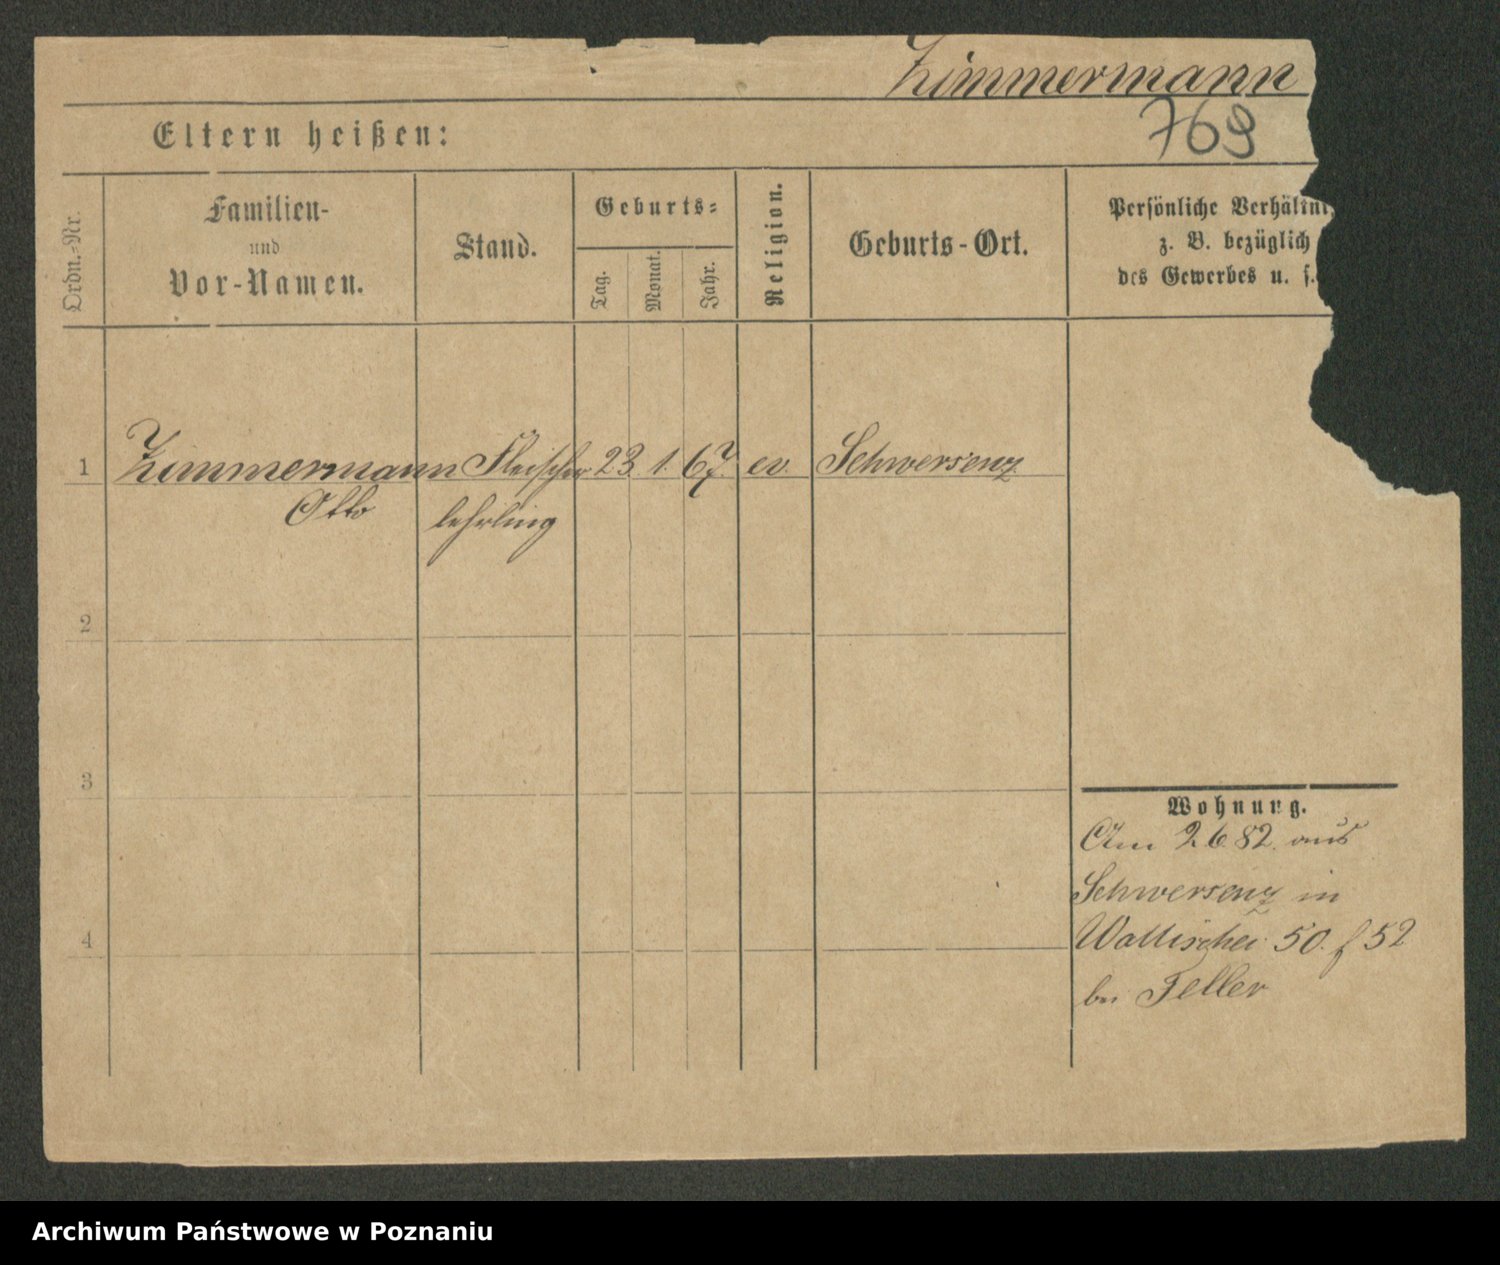 Zimmermann
769
Eltern heißen:
Ordn.-Nr.
Familien-
und
Vor-Namen.
Stand.
Geburts-
Tag.
Monat.
Jahr.
Religion.
Geburts-Ort.
Persönliche Verhältni
z. B. bezüglich
des Gewerbes u. s.
1 Zimmermann Fleischer 23 1. 67. ev. Schwersenz
Otto lehrling
2
3
4
Wohnung.
Am 2.6.82. aus
Schwersenz in
Wallischei 50. f 52
bei Teller
Archiwum Państwowe w Poznaniu